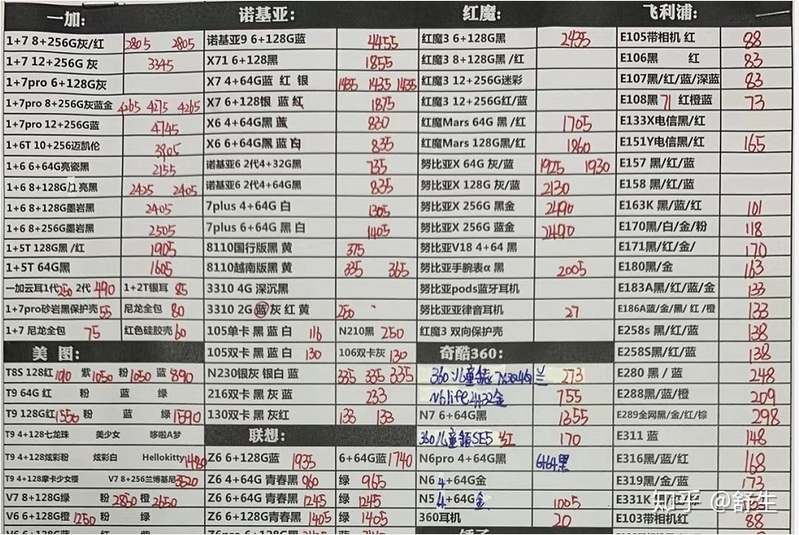 一加:
1+7 8+256G灰/红 2805 2805
1+7 12+256G 灰 3345
1+7pro 6+128G灰
1+7pro 8+256G灰蓝金 4265 4275 4265
1+7pro 12+256G蓝 4745
1+6T 10+256迈凯伦 3805
1+6 6+64G亮瓷黑 2155
1+6 8+128G 亮黑 2425 2405
1+6 8+128G墨岩黑 2405
1+6 8+256G墨岩黑 2505
1+5T 128G黑/红 1905
1+5T 64G黑 1605
一加云耳1代250 2代490 1+2T银耳 85
1+7pro砂岩黑保护壳55 尼龙全包 80
1+7 尼龙全包 75 红色硅胶壳60
美 图:
T8S 128红1010 紫1050 粉1050 蓝890
T9 64G 红 粉 蓝 绿
T9 128G红1550 粉 蓝 绿1590
T9 4+128七龙珠 美少女 哆啦A梦
T9 4+128炫彩粉 炫彩白 Hellokitty1480
T9 4+128摩卡少女樱 V7 8+256兰博基尼3520
V7 8+128G绿 粉2850 橙2650
V6 6+128G橙1250 粉 绿
诺基亚:
诺基亚9 6+128G蓝 4455
X71 6+128黑 1855
X7 4+64G蓝 红 银 1435 1435 1435
X7 6+128银 蓝 红 1875
X6 4+64G黑蓝 830
X6 6+64G黑 蓝 白 835
诺基亚6 2代4+32G黑 735
诺基亚6 2代4+64G黑 835
7plus 4+64G 白 1305
7plus 6+64G黑 白 1405
8110国行版黑 黄 375
8110越南版黑 黄 335 365
3310 4G 深沉黑
3310 2G 蓝灰 红 黄 250
105单卡 黑 蓝 白 116 N210黑 250
105双卡 黑 蓝 白 130 106双卡灰 130
N230银灰 银白 蓝 335 335 335
216双卡 黑 灰 蓝 233
130双卡 黑 灰红 133 133
联想:
Z6 6+128G蓝 1935 6+64G蓝 1740
Z6 4+64G 青春黑 960 绿 965
Z6 4+128G 青春黑 1245 绿 1245
Z6 6+128G 青春黑 1405 绿 1405
红魔:
红魔3 6+128G黑 2435
红魔3 8+128G黑 /红
红魔3 12+256G迷彩
红魔3 12+256G红/蓝
红魔Mars 64G 黑 /红 1705
红魔Mars 128G黑/红 1860
努比亚X 64G 灰/蓝 1925 1930
努比亚X 128G 灰/蓝 2130
努比亚X 256G 黑金 2490
努比亚X 256G 蓝金 2490
努比亚V18 4+64 黑
努比亚手腕表α 黑 2005
努比亚pods蓝牙耳机
努比亚亚律音耳机 27
红魔3 双向保护壳
奇酷360:
273
N6life 4+32金 755
N7 6+64G黑 1355
360儿童 SE5 红 170
N6pro 4+64G黑 6+64黑
N6 4+64G金
N5 4+64G金 1005
360耳机 20
飞利浦:
E105带相机 红 88
E106黑 红 83
E107黑/红/蓝/深蓝 83
E108黑71 红橙蓝 73
E133X电信黑/红
E151Y电信黑/红 165
E157 黑/红/蓝
E158 黑/红/蓝
E163K 黑/红 101
E170黑/白/金/粉 118
E171黑/红/金/ 170
E180黑/金 163
E183A黑/红/蓝/金 133
E186A蓝/金/黑/红/橙 133
E258s 黑/蓝 138
E258S黑/红 138
E280 黑 / 蓝 248
E288黑/蓝/橙 209
E289全网黑/金/红/棕 298
E311 蓝 148
E316黑/蓝/红 168
E319黑/蓝/金 173
E331K
E103带相机 红 88
知乎 @舒生